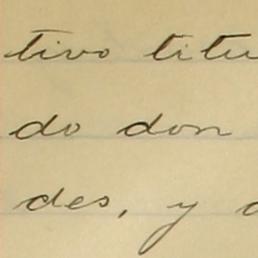 tivo titu
do don
des, y